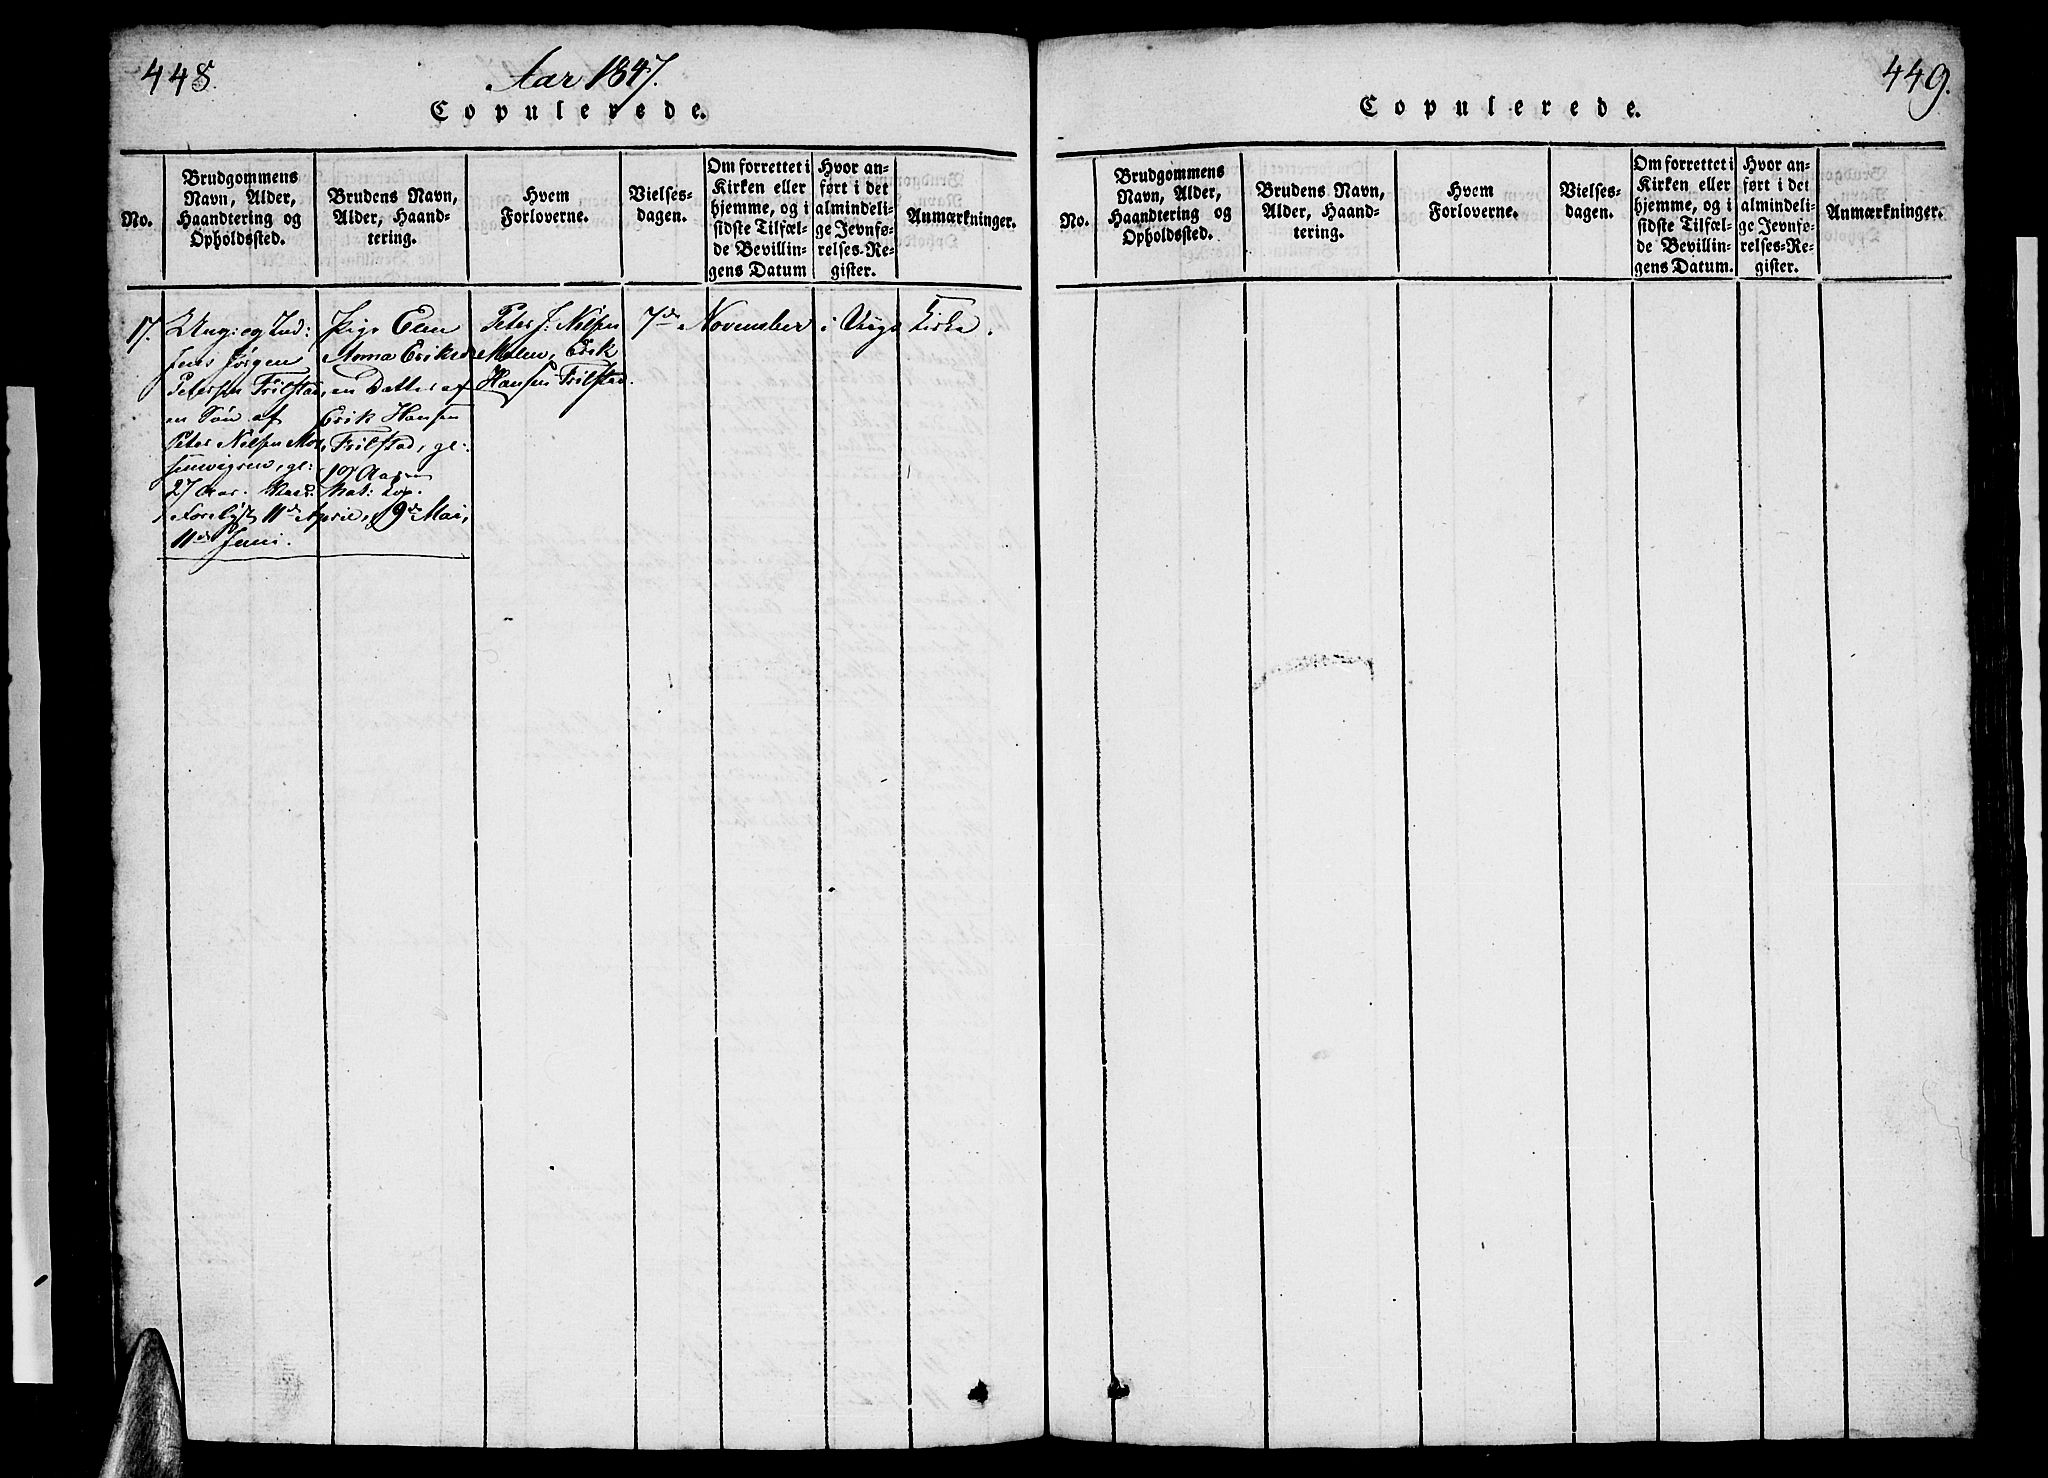 448.
Aar 1847.
Copulerede.
No.
Brudgommens
Navn, Alder,
Haandtering og
Opholdssted.
Brudens Navn,
Alder, Haand-
tering.
Hvem
Forloverne.
Vielses-
dagen.
Om forrettet i
Kirken eller
hjemme, og i
sidste Tilfæl-
de Bevillin-
gens Datum
Hvor an-
ført i det
almindeli-
ge Jevnfø-
relses-Re-
gister.
Anmærkninger.
17.
Ung: og Ind:
Jørgen
Petersen Frilstad,
en Søn af
Peter Nilsen
gl:
27 Aar.
Forelyst 11de April, 9de Mai,
11de Juni.
Pige Elen
Anna Eriksd
en Datter af
Erik Hansen
Frilstad, gl:
19 Aar
Nat: Kop.
Peter J: Nilsen
Malen, Erik
Hansen Frilstad.
7de November i Vigs Kirke.
449.
Copulerede.
No.
Brudgommens
Navn, Alder,
Haandtering og
Opholdssted.
Brudens Navn,
Alder, Haand-
tering.
Hvem
Forloverne.
Vielses-
dagen.
Om forrettet i
Kirken eller
hjemme, og i
sidste Tilfæl-
de Bevillin-
gens Datum.
Hvor an-
ført i det
almindeli-
ge Jevnfø-
relses-Re-
gister.
Anmærkninger.